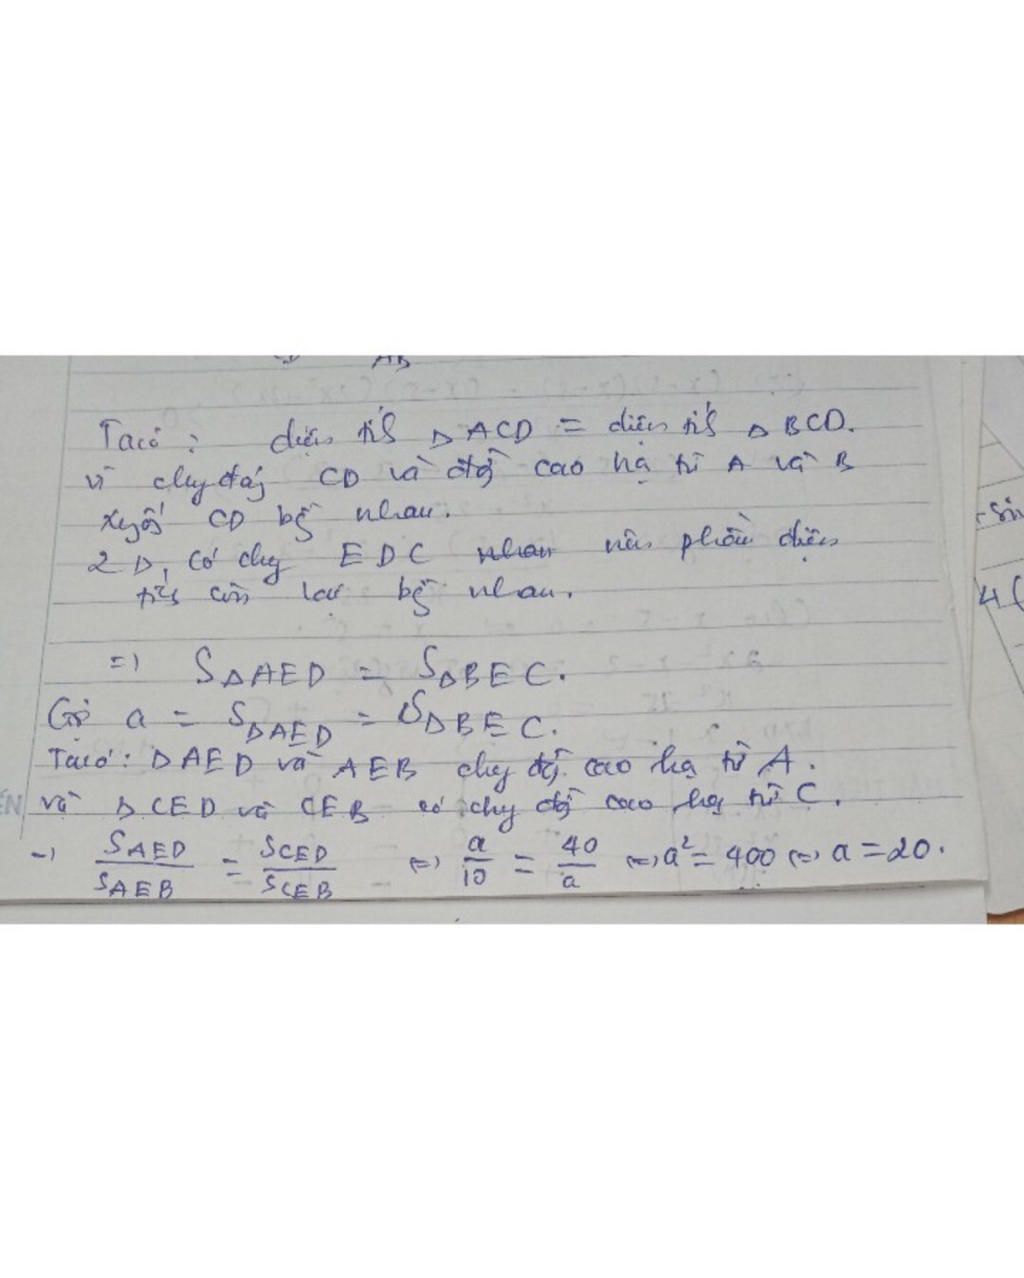 AB
Ta có: diện tích Δ ACD = diện tích Δ BCD.
vì chung đáy CD và độ cao hạ từ A và B
xuống CD bằng nhau.
2 Δ, có chung EDC nên phần diện
tích còn lại bằng nhau.
=> SΔAED = SΔBEC.
Gọi a = SΔAED = SΔBEC.
Ta có: ΔAED và AEB chung độ cao hạ từ A.
và Δ CED và CEB có chung độ cao hạ từ C.
=> SAED/SAEB = SCED/SCEB <=> a/10 = 40/a <=> a² = 400 <=> a = 20.
-sin
4(
ÊN